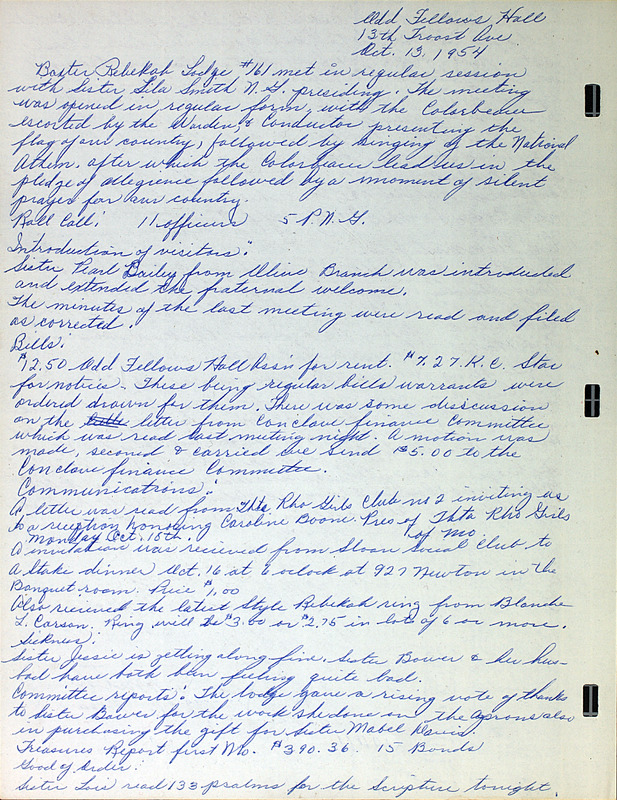 Odd Fellows Hall
13th Troost Ave
Oct. 13, 1954
Baxter Rebekah Lodge #161 met in regular session
with Sister Lila Smith N.G. presiding. The meeting
was opened in regular form, with the Colorbearer
escorted by the Warden, & Conductor presenting the
flag of our country, followed by singing of the National
Athem, after which the Colorbearer lead us in the
pledge of allegience followed by a moment of silent
prayer for our country.
Roll Call: 11 officers 5 P.N.G.
Introduction of visitors:
Sister Pearl Bailey from Olive Branch was introducted
and extended the fraternal welcome.
The minutes of the last meeting were read and filed
as corrected.
Bills:
$12.50 Odd Fellows Hall Ass'n for rent. $7.27 K.C. Star
for notice. These being regular bills warrants were
ordered drawn for them. There was some disscussion
on the letter from Conclave finance Committee
which was read last meeting night. A motion was
made, second & carried we send $5.00 to the
Conclave finance Committee.
Communications:
A letter was read from Theta Rho Girls Club no 2 inviting us
to a reception honoring Caroline Boone Pres of Theta Rho Girls
Monday Oct. 18th. of Mo.
A invitation was recieved from Sloan Social Club to
a Stake dinner Oct. 16 at 6 oclock at 927 Newton in the
Banquet room. Price $1.00
Also recieved the latest style Rebekah ring from Blanche
L. Carson. Ring will be $3.00 or $2.75 in lots of 6 or more.
Sickness:
Sister Jessie is getting along fine. Sister Bower & her hus-
bad have both been feeling quite bad.
Committee reports: The lodge gave a rising vote of thanks
to Sister Bower for the work she done on the aprons also
in purchasing the gift for Sister Mabel Davis.
Treasures Report first Mo. $390.36. 15 Bonds
Good of Order:
Sister Lois read 133 psalms for the Scripture tonight.